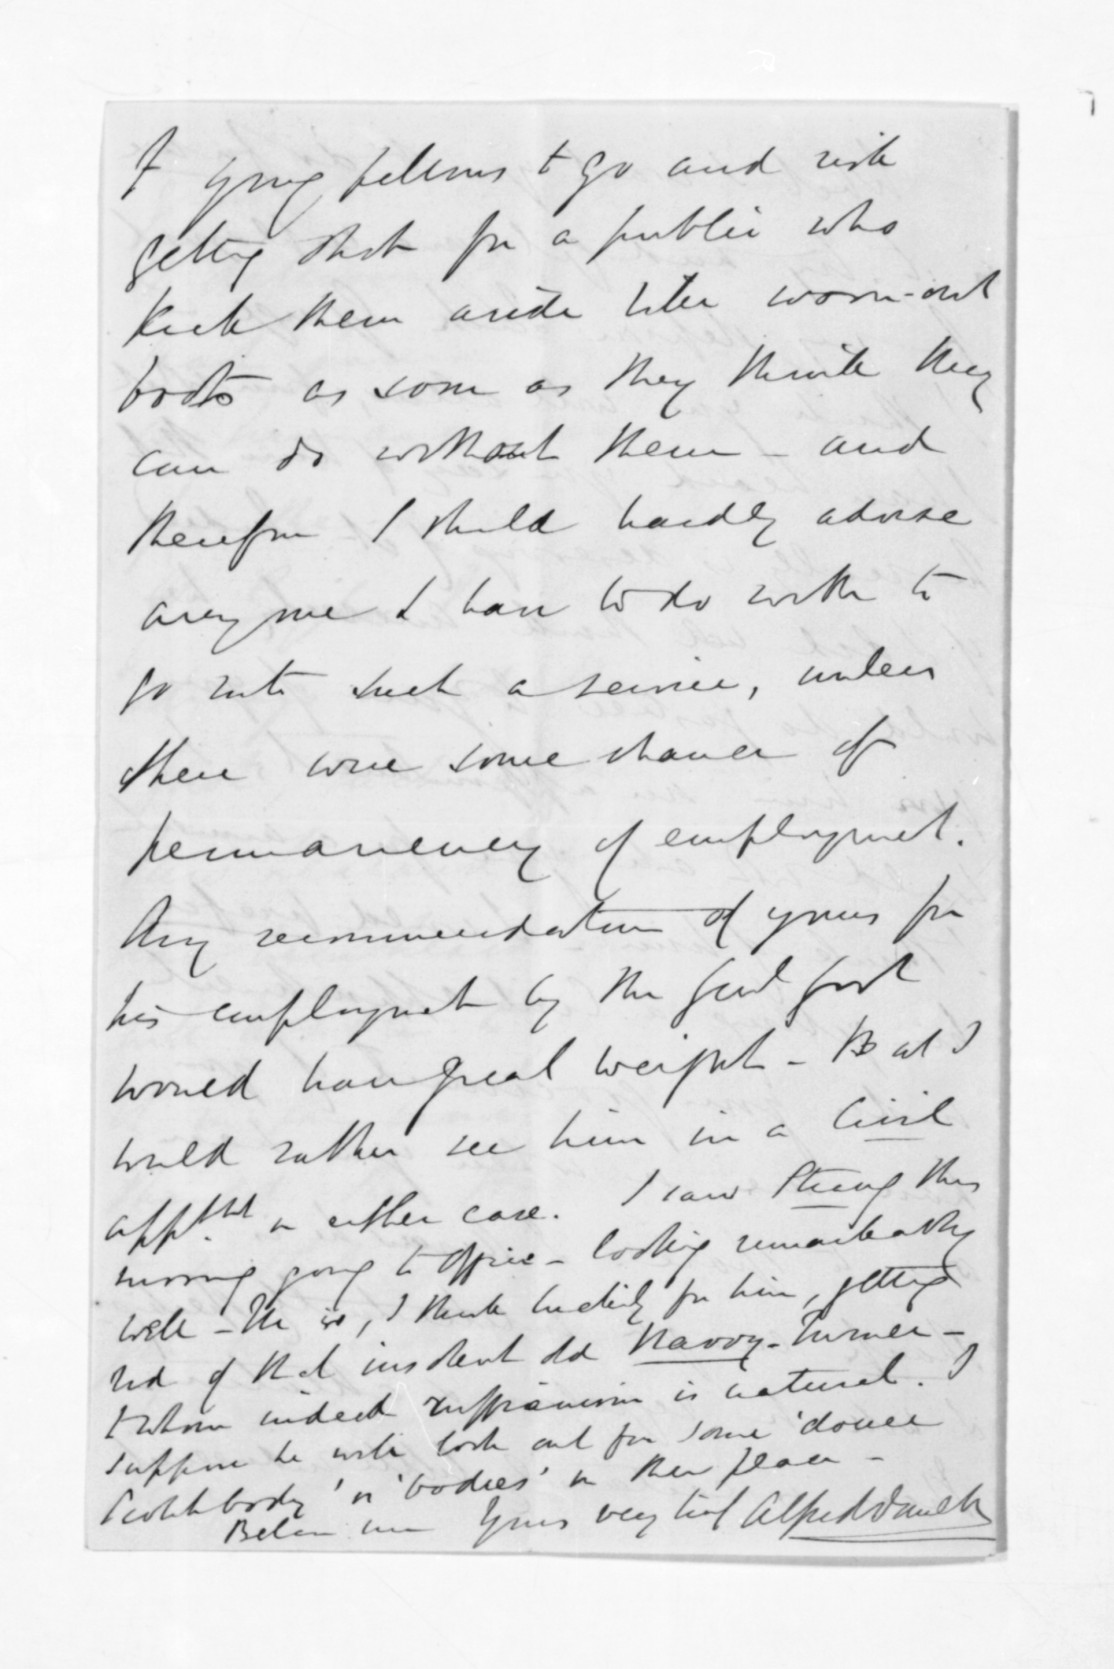 of young fellows to go and risk
getting shot for a public who
kick them aside like worn-out
boots as soon as they think they
can do without them - and
therefore I should hardly advise
any one I have to do with to
go into such a service, unless
there were some chance of
permanency of employment.
Any recommendation of yours for
his employment by the Genl Govt
would have great weight - But I
would rather see him in a Civil
appt. in either case. I saw Strang this
morning going to Office - looking remarkably
well - He is, I think luckily for him, getting
rid of that insolent old Navvy - Turner -
to whom indeed ruffianism is natural. I
suppose he will look out for some 'douce
Scotch body' or 'bodies' in their place -
Believe me Yours very truly Alfred Domett